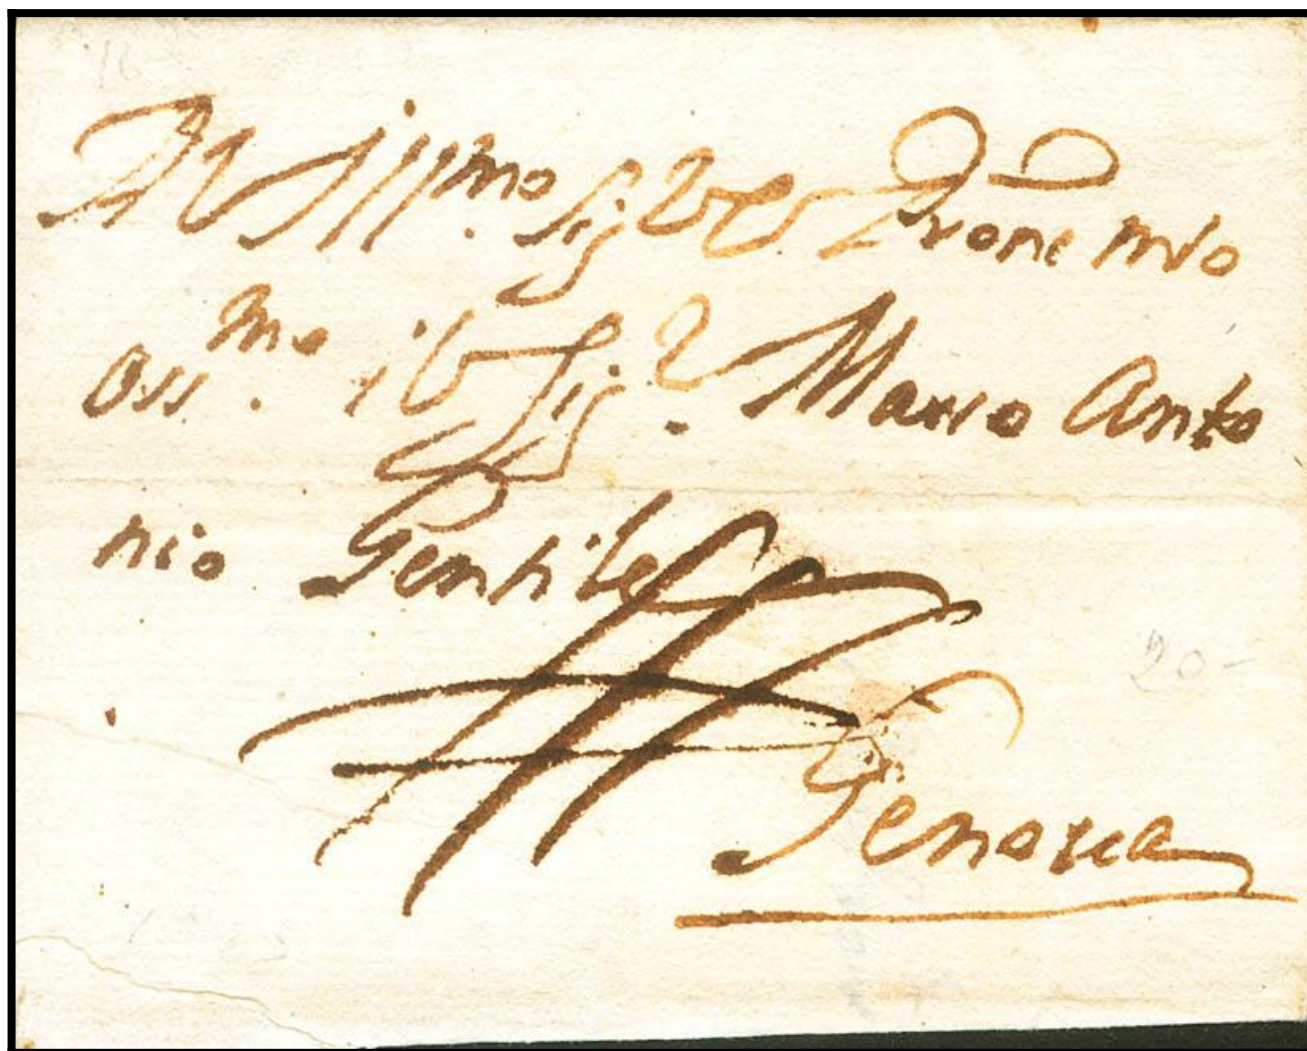 Al Ill.mo Sig.r et Prone mio
oss.mo il Sig.r Marco Anto
nio Gentile
Genova
20-